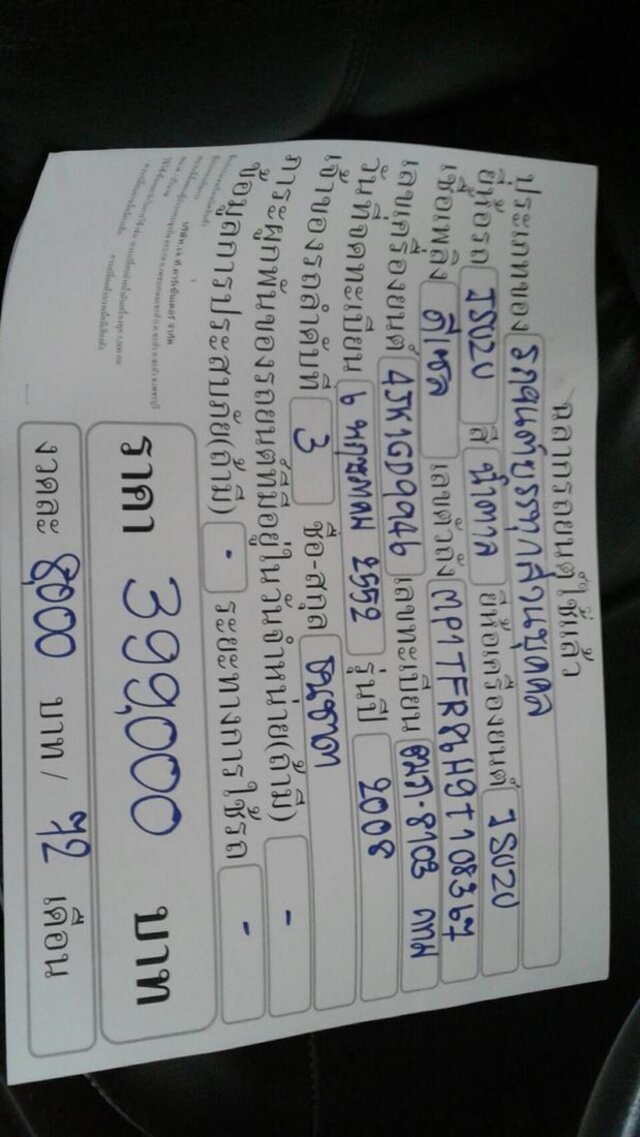 ฉลากรถยนต์ใช้แล้ว
ประเภทของ รถยนต์บรรทุกส่วนบุคคล
ยี่ห้อรถ ISUZU สี น้ำตาล ยี่ห้อเครื่องยนต์ ISUZU
เชื้อเพลิง ดีเซล เลขตัวถัง
เลขเครื่องยนต์ 4JK1GD9946 เลขทะเบียน
วันที่จดทะเบียน 6 พฤษภาคม 2552 รุ่นปี 2008
เจ้าของรถลำดับที่ 3 ชื่อ-สกุล ธนชาต
ภาระผูกพันของรถยนต์ที่มีอยู่ในวันจำหน่าย(ถ้ามี) -
ข้อมูลการประสบภัย(ถ้ามี) - ระยะทางการใช้รถ -
ราคา 399,000 บาท
งวดละ 8,000 บาท / 72 เดือน